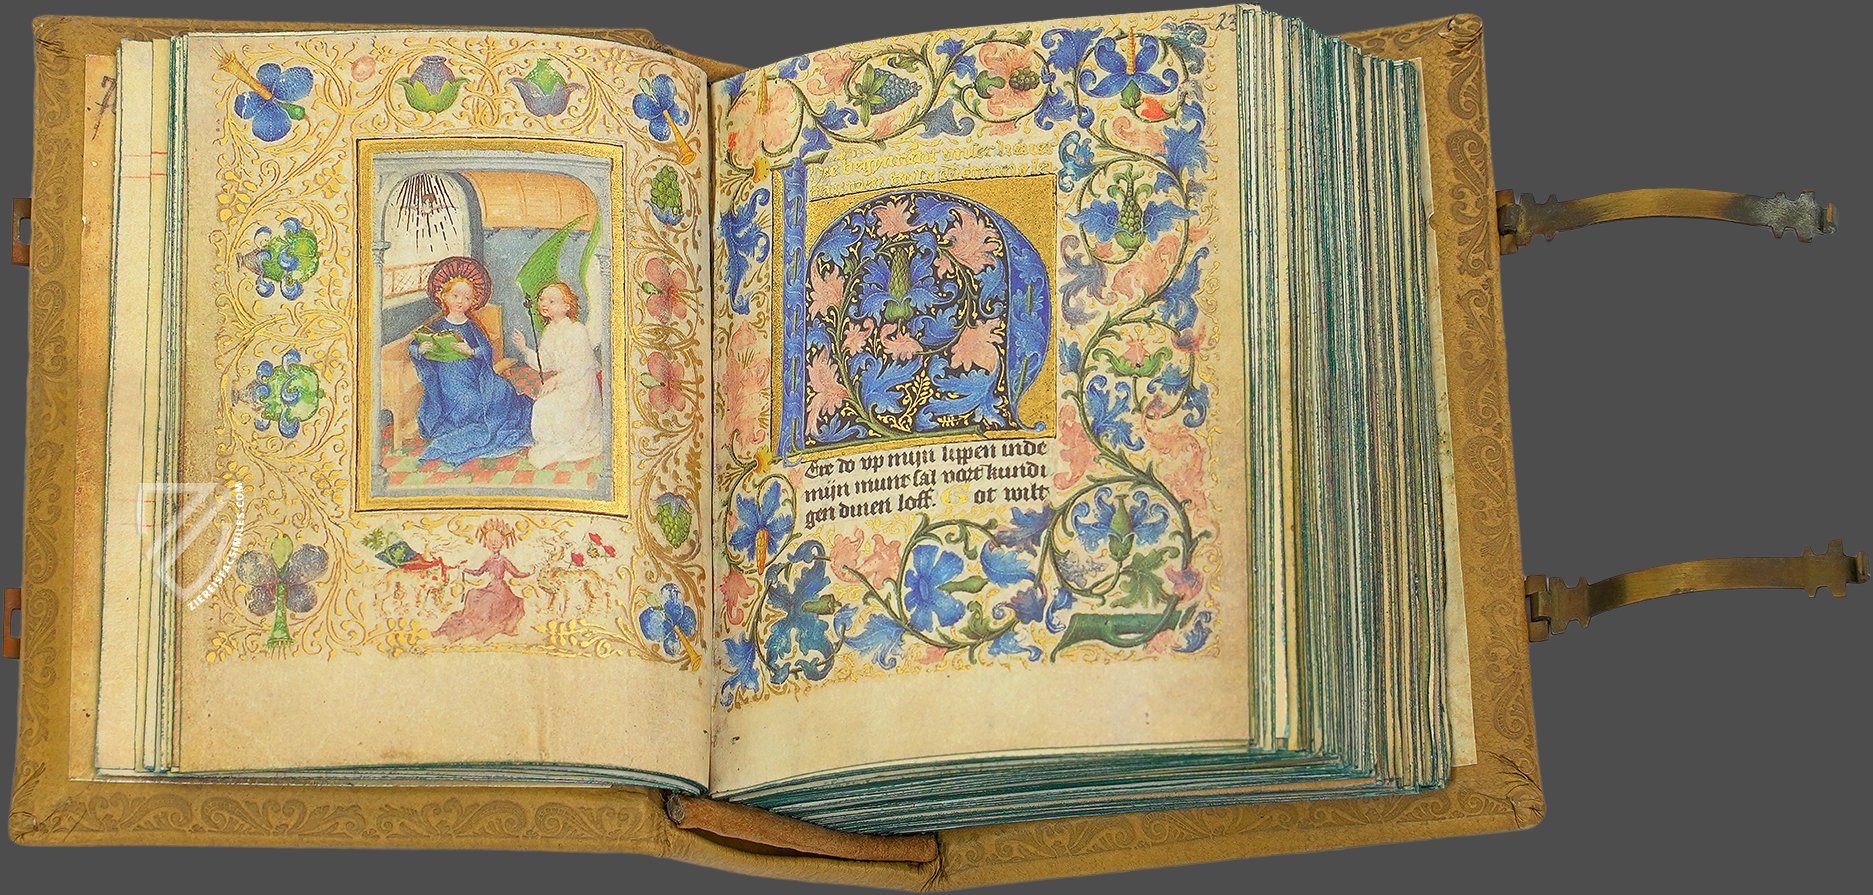 23
begynnent vnser
H
Ere do vp mijn lippen inde
mijn munt sal vort kundi
gen dinen loff. Got wilt
ZIERESFACSIMILES.COM